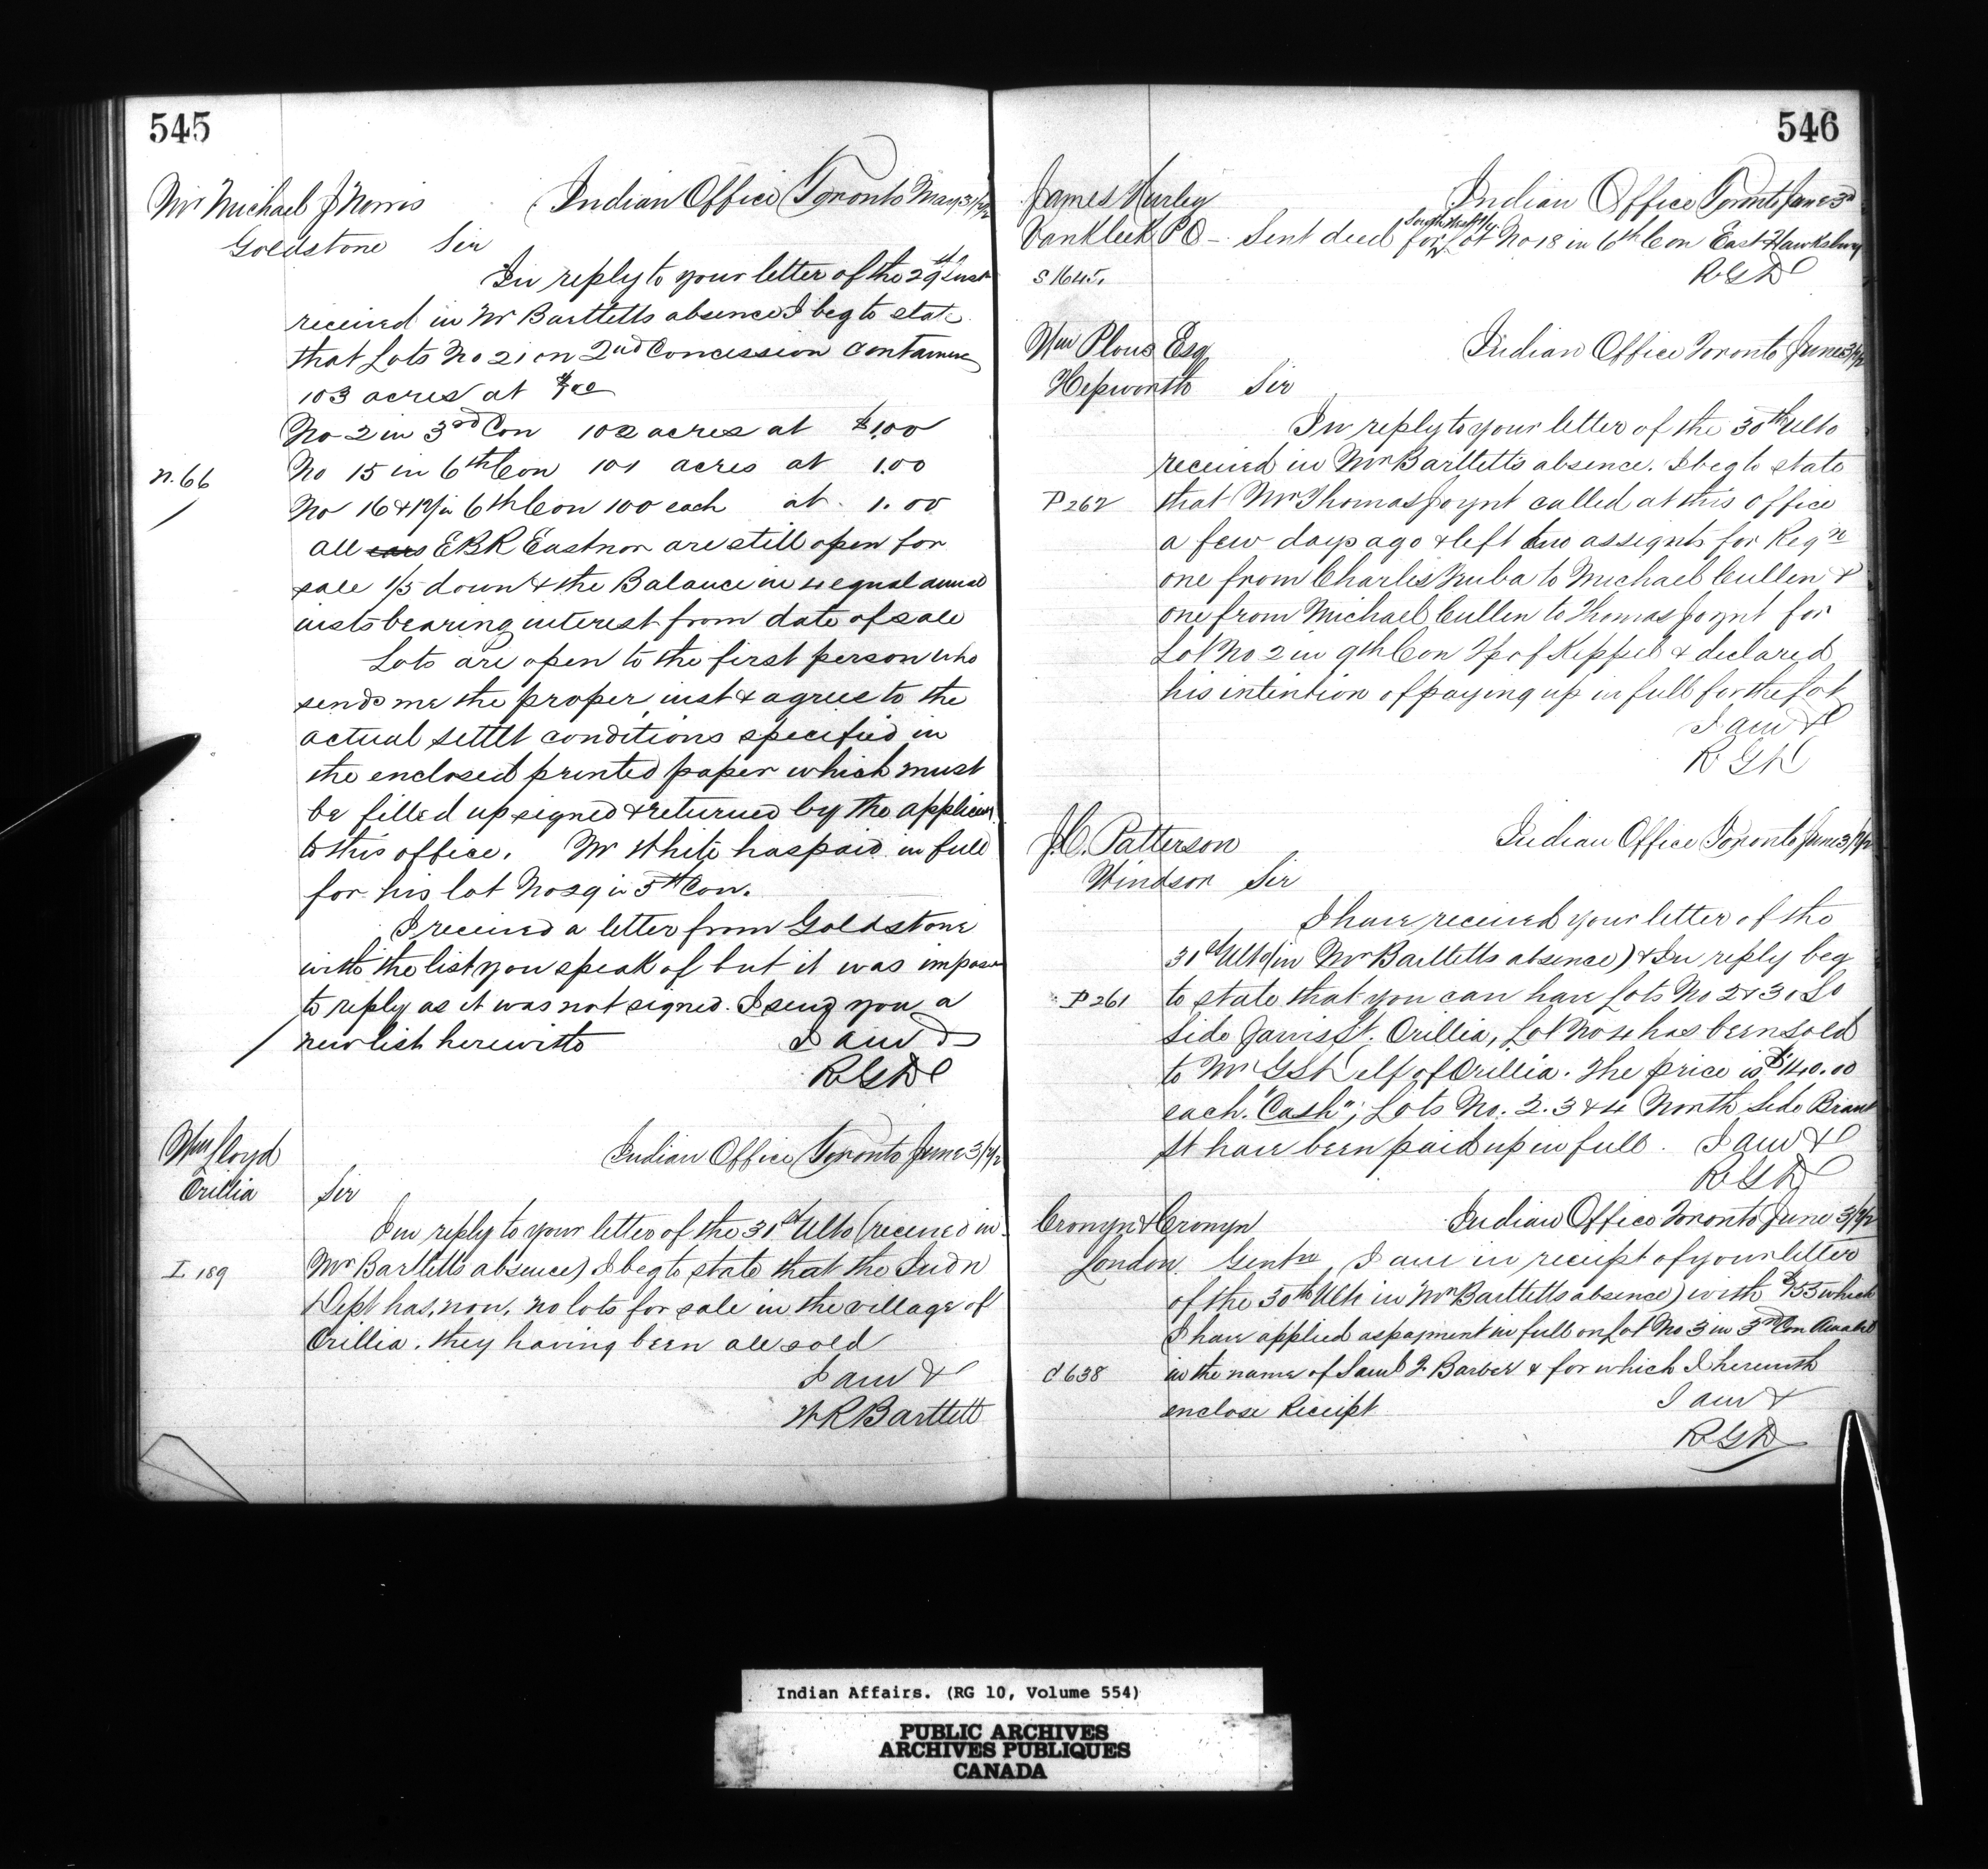 545
Mr Michael J Norris
Indian Office Toronto May 31/72
Goldstone Sir
In reply to your letter of the 29th Inst
received in Mr Bartletts absence I beg to state
that Lots No 21 on 2nd Concession containing
103 acres at
No 2 in 3rd Con 102 acres at $1.00
n.66
No 15 in 6th Con 101 acres at 1.00
No 16 & 17 in 6th Con 100 each at 1.00
all EBR Eastnor are still open for
sale 1/5 down & the Balance in 4 equal annual
insts bearing interest from date of sale
Lots are open to the first person who
sends me the proper inst & agrees to the
actual settlt conditions specified in
the enclosed printed paper which must
be filled up signed & returned by the applicant
to this office. Mr White has paid in full
for his lot No 29 in 5th Con.
I received a letter from Goldstone
with the list you speak of but it was impos
to reply as it was not signed. I send you a
new list herewith I am &
RGD
Wm Lloyd
Indian Office Toronto June 3/72
Orillia Sir
In reply to your letter of the 31st Ulto (received in
I 189
Mr Bartletts absence) I beg to state that the Indn
Dept has, now, no lots for sale in the village of
Orillia. they having been all sold
I am &
WRBartlett
546
James Hurley
Indian Office Toronto June 3rd
South West 1/4
Vankleek PO - Sent deed for Lot No 18 in 6th Con East Hawksbury
S 1645.
RGD
Wm Plous Esq
Indian Office Toronto June 3/72
Hepworth Sir
In reply to your letter of the 30th Ulto
received in Mr Bartletts absence. I beg to state
P 262
that Mr Thomas Joynt called at this office
a few days ago & left two assignts for Regn
one from Charles Ruba to Michael Cullen &
one from Michael Cullen to Thomas Joynt for
Lot No 2 in 9th Con Tp of Keppel & declared
his intention of paying up in full for the lot
I am &
RGD
J.C. Patterson
Indian Office Toronto June 3/72
Windsor Sir
I have received your letter of the
31st Ulto (in Mr Bartletts absence) & In reply beg
P 261
to state that you can have Lots No 2 & 3. So
side Jarvis St. Orillia, Lot No 4 has been sold
to Mr of Orillia. The price is $40.00
each. "Cash"; Lots No. 2. 3 & 4 North side Brant
St have been paid up in full. I am &
RGD
Cronyn & Cronyn
Indian Office Toronto June 3/72
London. Gentn, I am in receipt of your letter
of the 30th Ulto in Mr Bartletts absence) with $55 which
I have applied as payment in full on Lot No 3 in 3rd Con Amabel
C 638
in the name of Saml J. Barber & for which I herewith
enclose Receipt I am &
RGD
Indian Affairs. (RG 10, Volume 554)
PUBLIC ARCHIVES
ARCHIVES PUBLIQUES
CANADA